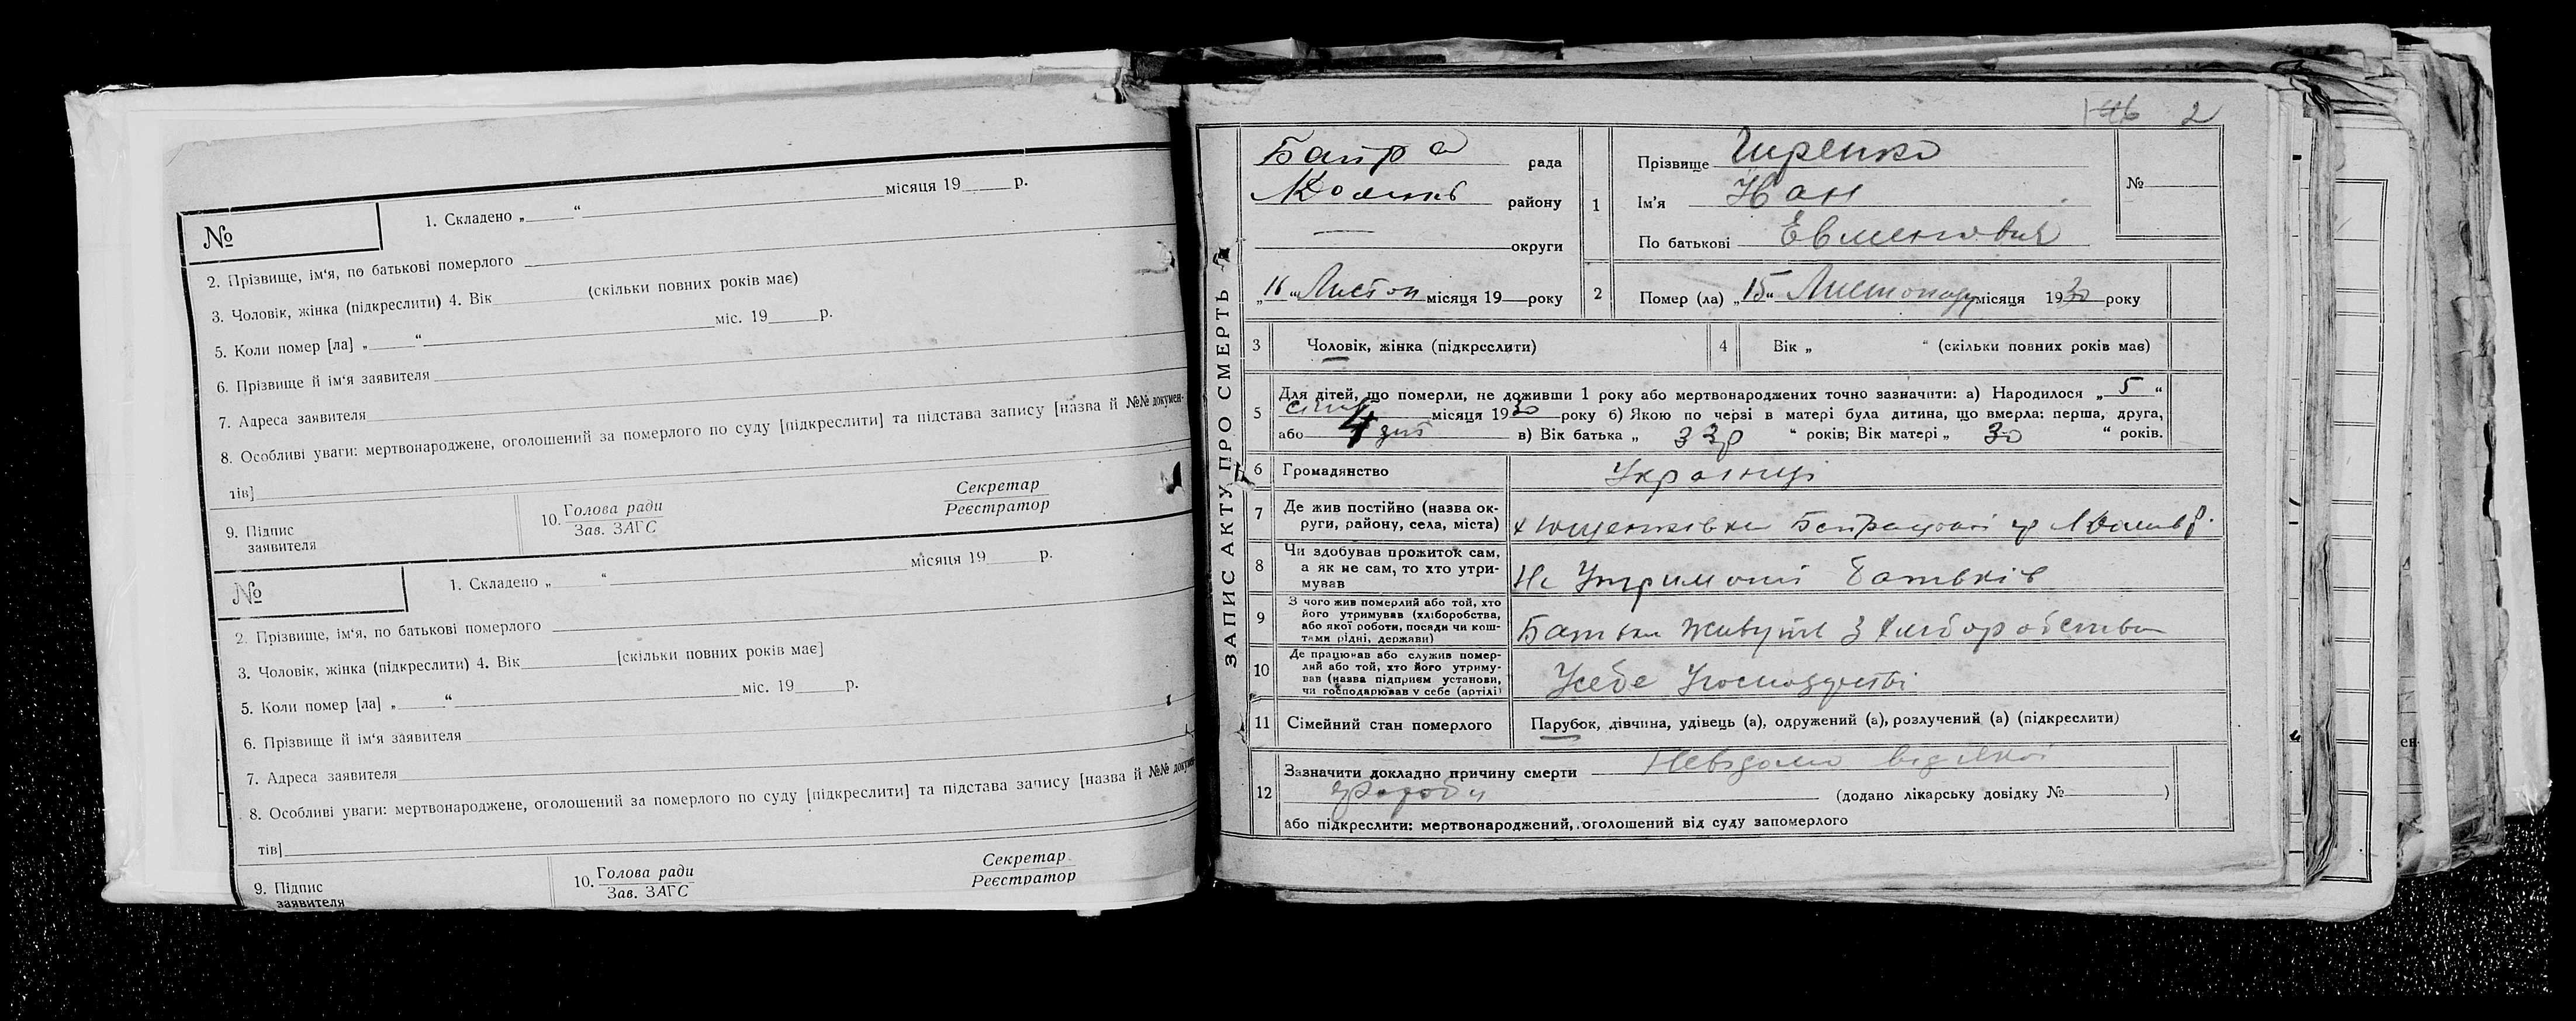 №
1. Складено „ “ місяця 19 р.
2. Прізвище, ім‘я, по батькові померлого
3. Чоловік, жінка (підкреслити) 4. Вік (скільки повних років має)
5. Коли помер [ла] „ “ міс. 19 р.
6. Прізвище й ім‘я заявителя
7. Адреса заявителя
8. Особливі уваги: мертвонароджене, оголошений за померлого по суду [підкреслити] та підстава запису [назва й №№ докумен-
тів]
9. Підпис заявителя
10. Голова ради
Зав. ЗАГС
Секретар
Реєстратор
№
1. Складено „ “ місяця 19 р.
2. Прізвище, ім‘я, по батькові померлого
3. Чоловік, жінка (підкреслити) 4. Вік [скільки повних років має]
5. Коли помер [ла] „ “ міс. 19 р.
6. Прізвище й ім‘я заявителя
7. Адреса заявителя
8. Особливі уваги: мертвонароджене, оголошений за померлого по суду [підкреслити] та підстава запису [назва й №№ докумен-
тів]
9. Підпис
заявителя
10. Голова ради
Зав. ЗАГС
Секретар
Реєстратор
146 2
ЗАПИС АКТУ ПРО СМЕРТЬ
рада
району
округи
„16“ Листоп місяця 19 року
1
Прізвище
Ім‘я
По батькові Евменович
№
2
Помер (ла) „15“ Листопаду місяця 1930 року
3 Чоловік, жінка (підкреслити)
4 Вік „ “ (скільки повних років має)
5 Для дітей, що померли, не доживши 1 року або мертвонароджених точно зазначити: а) Народилося „5“
місяця 1930 року б) Якою по черзі в матері була дитина, що вмерла: перша, друга,
або 4 в) Вік батька „33р“ років; Вік матері „30“ років.
6 Громадянство Українці
7 Де жив постійно (назва ок-
руги, району, села, міста)
х Ющенківка
8 Чи здобував прожиток сам,
а як не сам, то хто утри-
мував
На Утримані батьків
9 З чого жив померлий або той, хто
його утримував (хліборобства,
або якої роботи, посади чи кош-
тами рідні, держави)
Батьки живуть з хліборобства
10 Де працював або служив помер-
лий або той, хто його утриму-
вав (назва підприєм установи,
чи господарював у себе (артілі)
Усебе Угосподарстві
11 Сімейний стан померлого
Парубок, дівчина, удівець (а), одружений (а), розлучений (а) (підкреслити)
12 Зазначити докладно причину смерти Невідомо від якої
хвороби (додано лікарську довідку № )
або підкреслити: мертвонароджений, оголошений від суду запомерлого
ен-